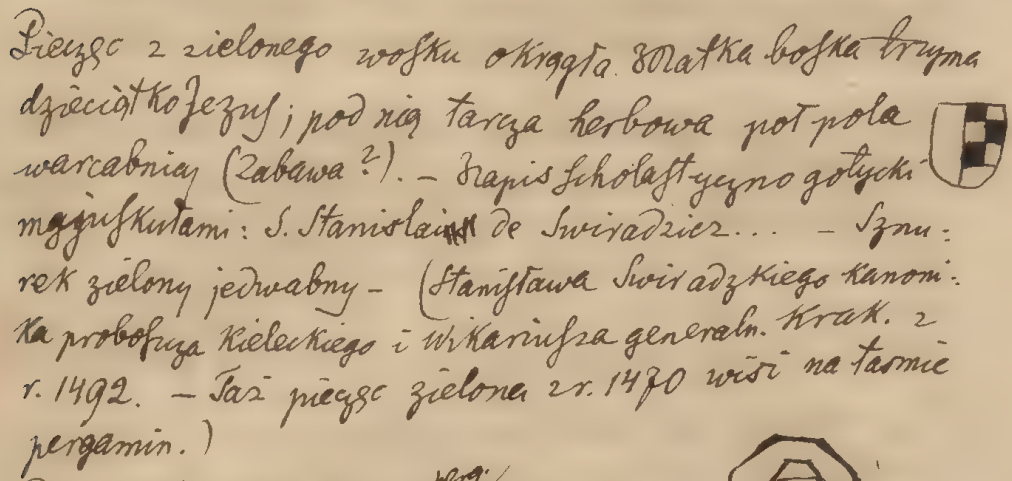 Pieczęc z zielonego woſku okrągła. Matka boſka trzyma
dzieciątko Jezuſ; pod nią tarcza herbowa poł pola
warcabnicą (Zabawa?). – Napis ſcholaſtyczno gotycki
majuſkułami: S. Stanislai de Swiradzicz... – Sznu-
rek zielony jedwabny – (Staniſława Swiradzkiego kanoni-
ka proboſzcza Kieleckiego i Wikariuſza generaln. Krak. z
r. 1492. – Taż pieczęc zielona z r. 1470 wisi na taśmie
pergamin.)
perg.